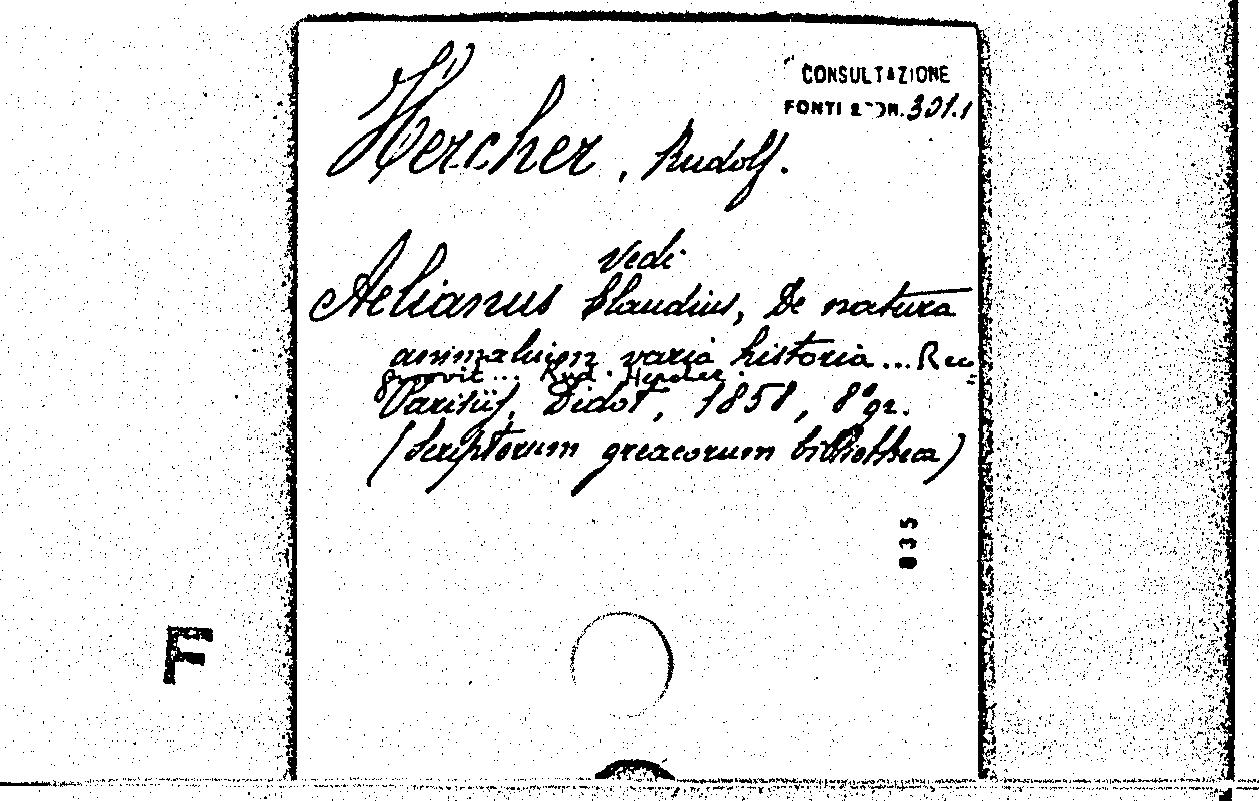 CONSULTAZIONE
FONTI 301.1
Hercher, Rudolf.
Vedi
Aelianus Claudius, De natura
animalium varia historia... Rec=
gnovit... Rud. Hercher.
Parisiis, Didot, 1858, 8° gr.
(Scriptorum graecorum bibliotheca)
835
F